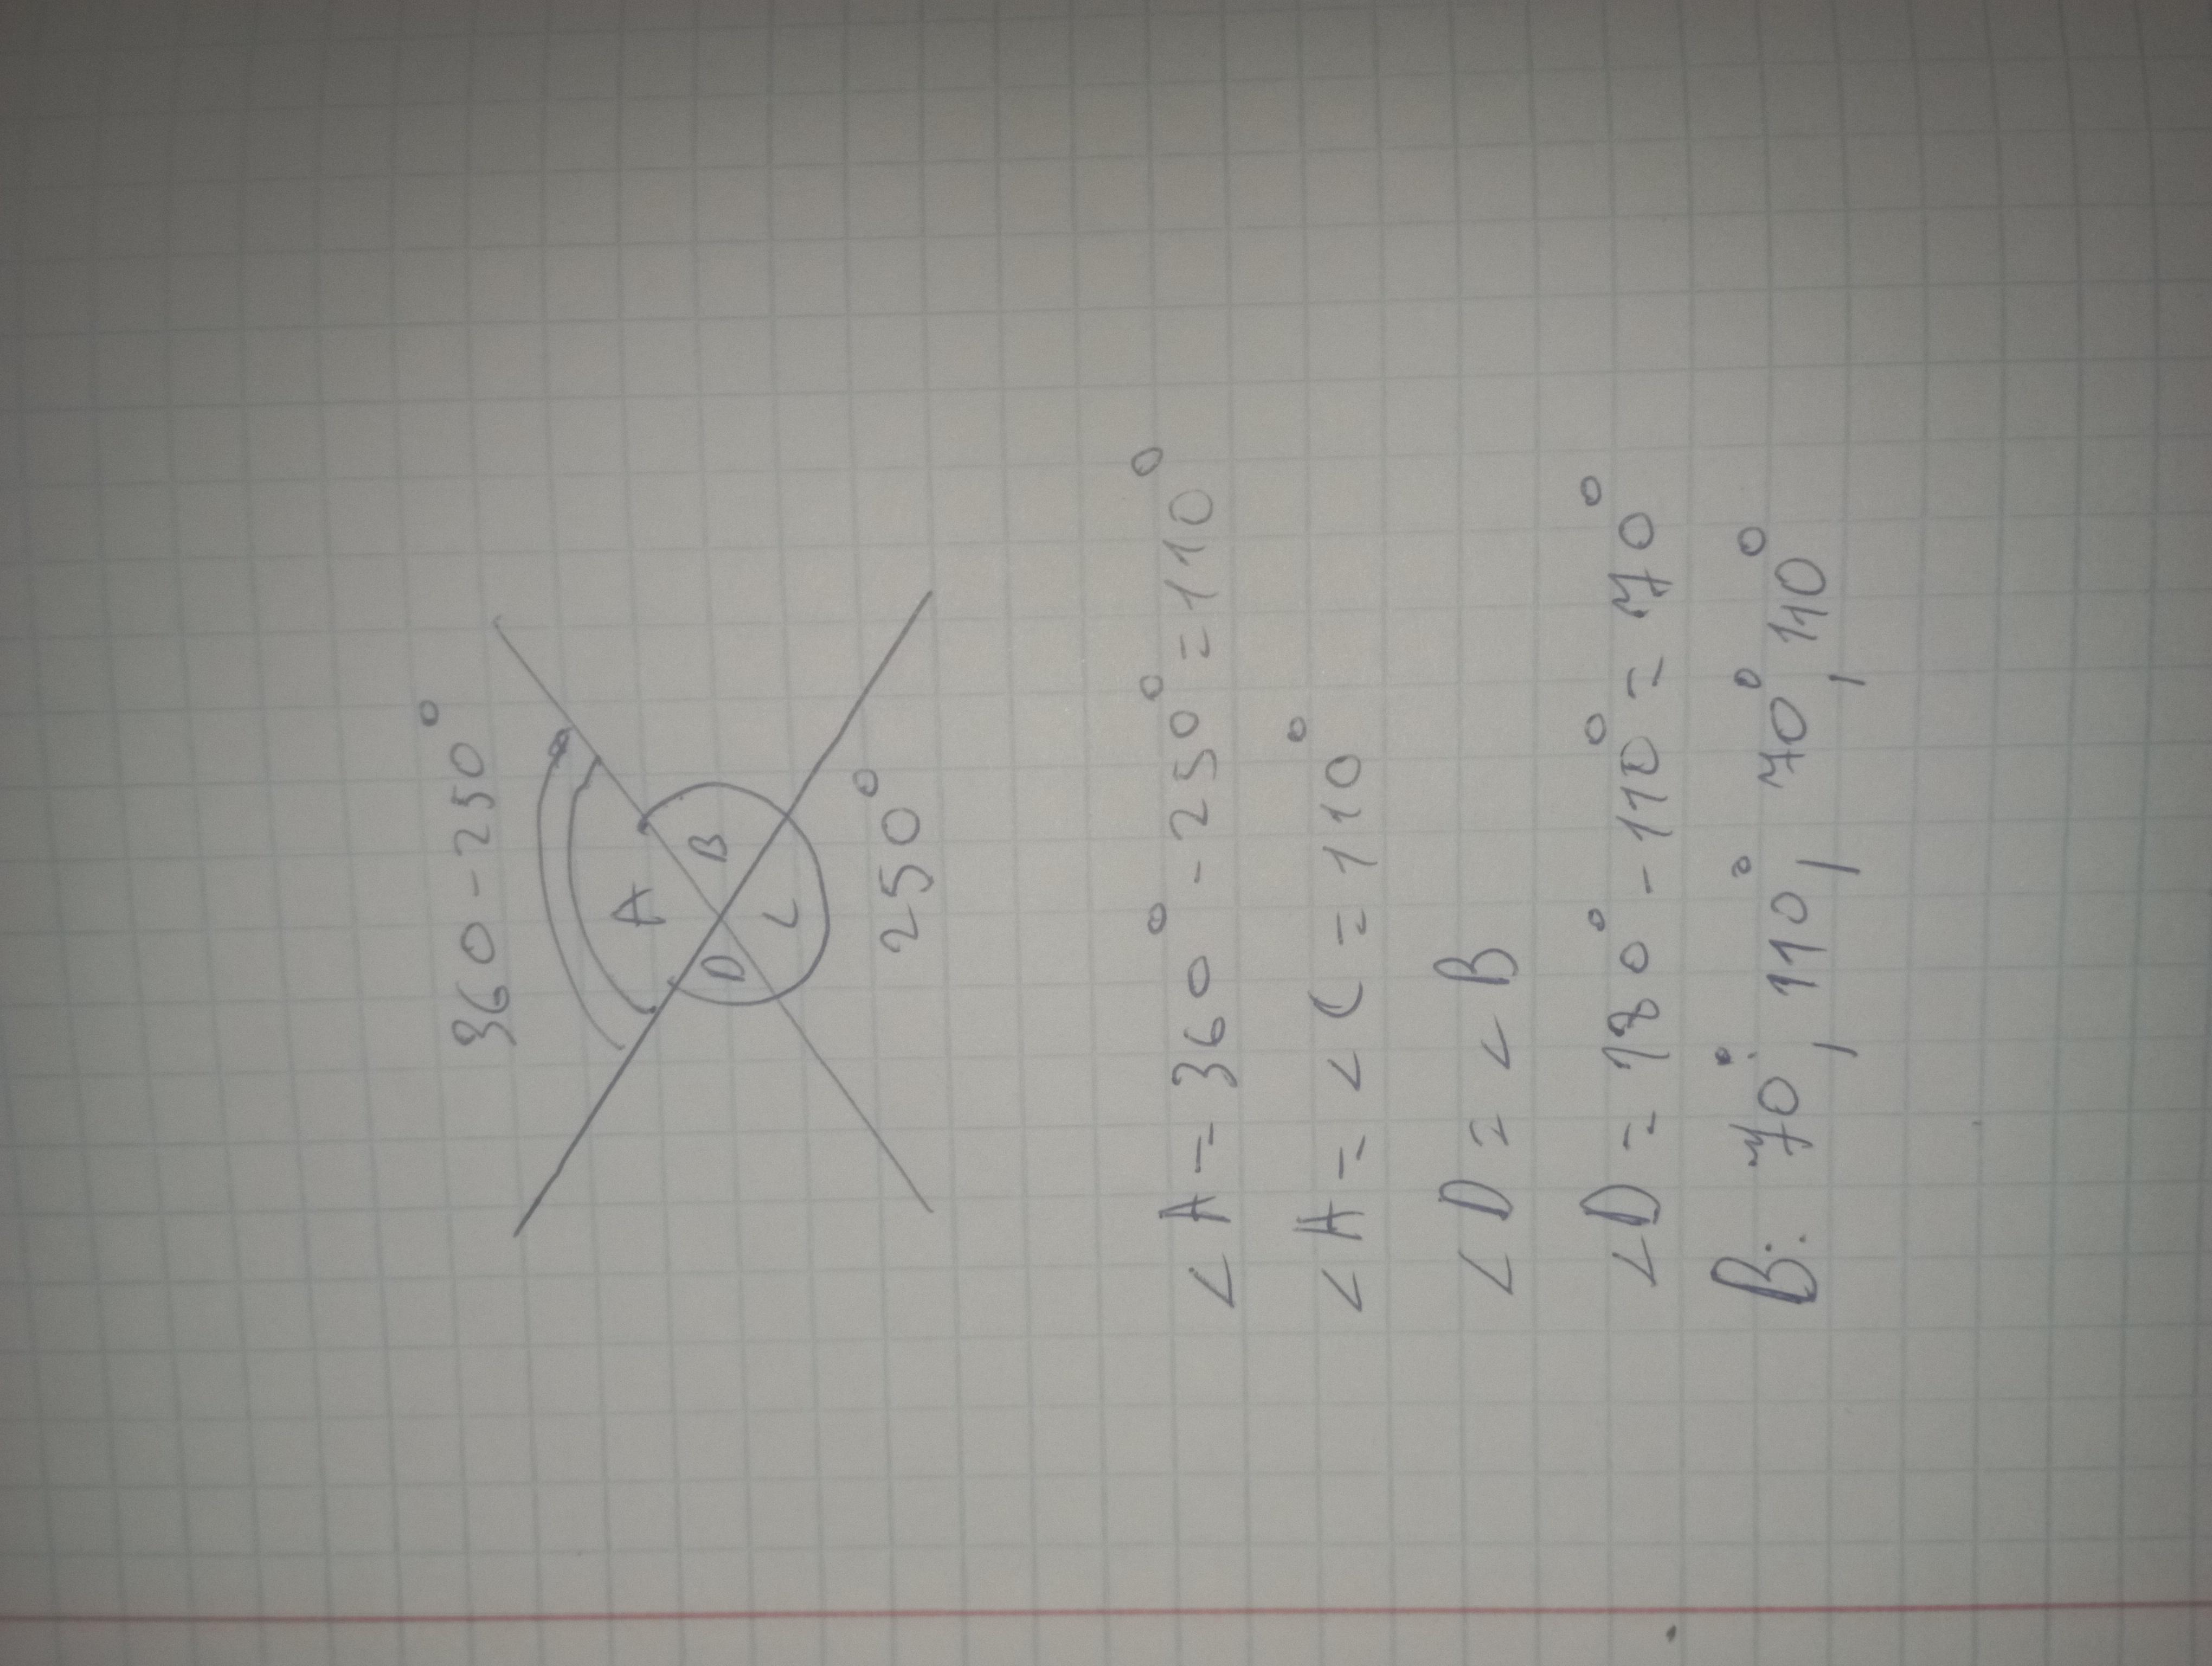 360-250°
A
D B
C
250°
<A=360°-250°=110°
<A=<C=110°
<D=<B
<D=180°-110°=70°
B: 70°, 110°, 70°, 110°